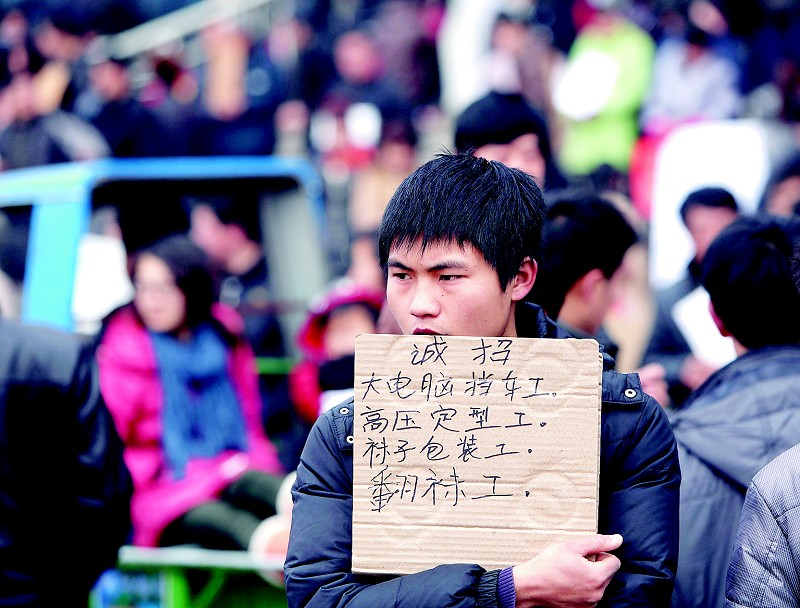 诚 招
大电脑挡车工。
高压定型工。
袜子包装工.
翻袜工.